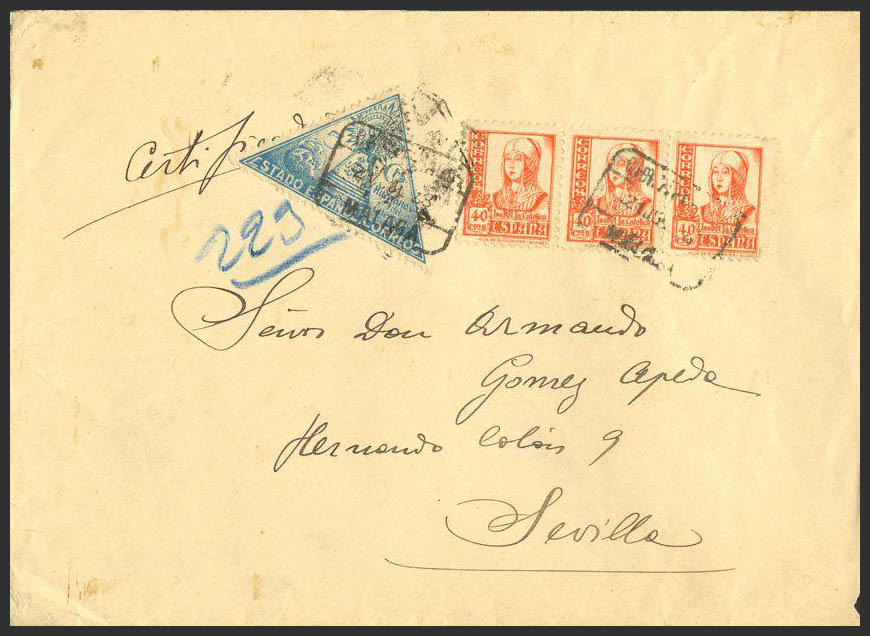 Certificado
ESTADO ESPAÑOL.CORREOS
223
CORREOS
40 cts. Isabel la Católica
ESPAÑA
CORREOS
40 cts. Isabel la Católica
ESPAÑA
CORREOS
40 cts. Isabel la Católica
ESPAÑA
MALAGA
MALAGA
Señor Don Armando
Gomez
Hernando Colón 9
Sevilla